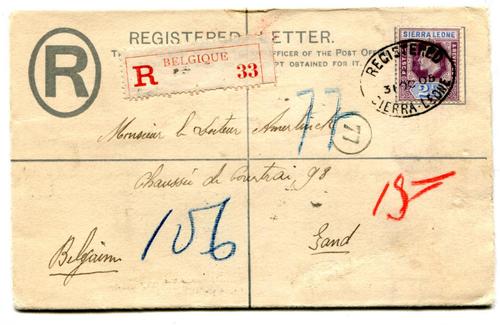 REGISTERED LETTER.
THE OFFICER OF THE POST OFFICE
PT OBTAINED FOR IT.
R
BELGIQUE
R 33
SIERRA LEONE
REGISTERED
SIERRA-LEONE
77
77
Monsieur le Docteur Amerlinck
Chaussée de Courtrai 98
Gand
Belgium
106